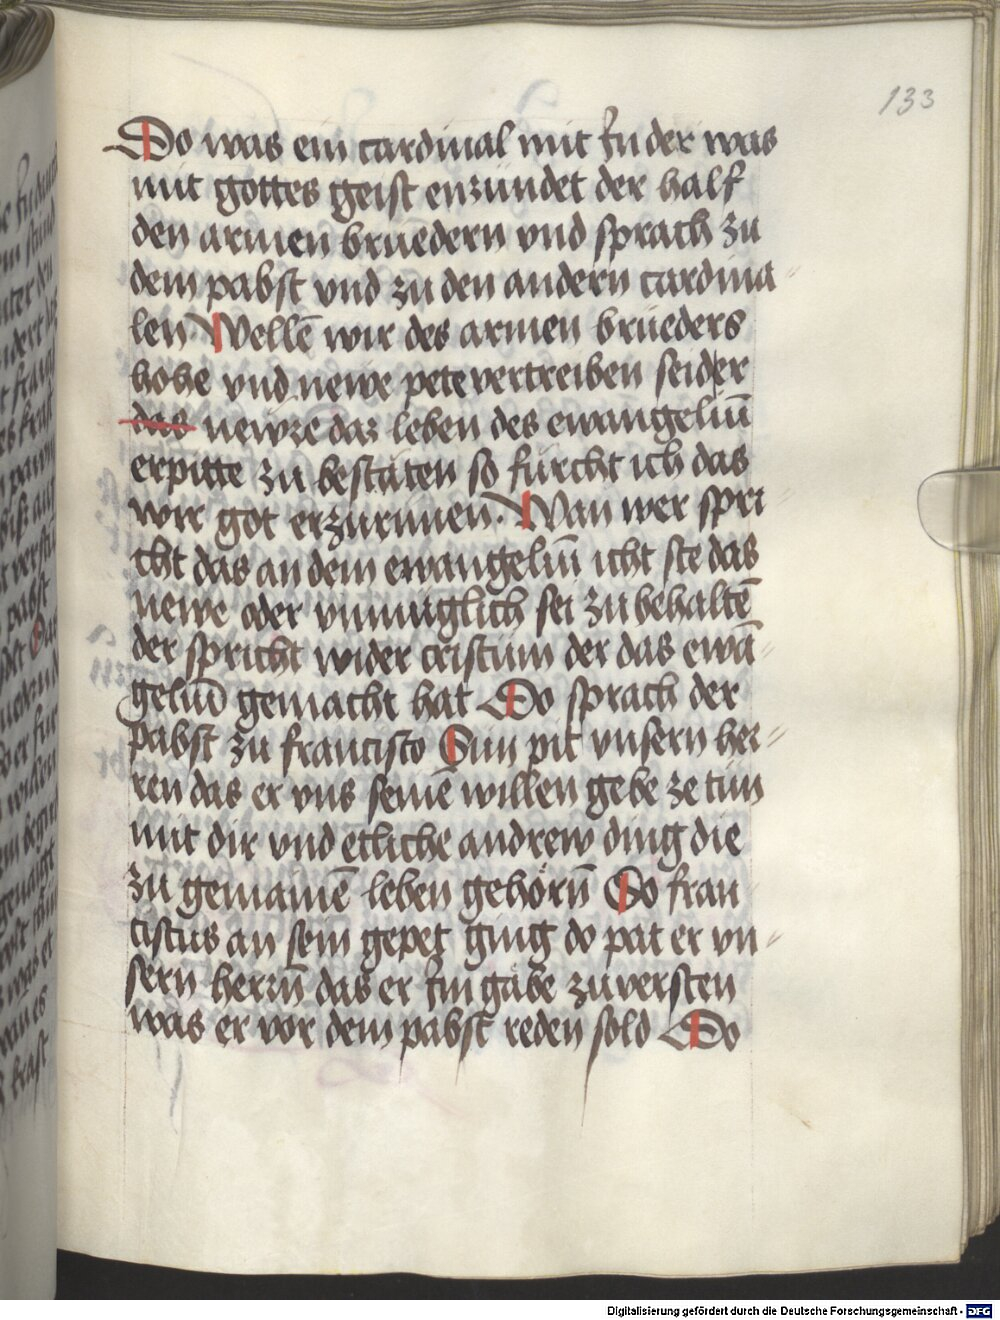 133
Do was ein cardinal mit in der was
mit gottes geist enzundet der half
den armen bruedern vnd sprach zu
dem pabst vnd zu den andern cardina
len Wellē wir des armen brueders
hohe vnd newe pete vertreiben seider
das newze das leben des ewangeliū
erpitte zu bestäten so fürcht ich das
wir got erzurnnen. Wan wer spri
cht das an dem ewangeliū icht ste das
newe oder vnmuglich sei zu behaltē
der spricht wider cristum der das ewā
geliū gemacht hat Do sprach der
pabst zu francisco Sun pit vnsern her
ren das er vns seinē willen gebe ze tun
mit dir vnd etliche andrew ding die
zu gemainē leben gehörn̄ Do fran
ciscus an sein gepet ging do pat er vn
sern herrn̄ das er im gäbe zu versten
was er vor dem pabst reden sold Do
Digitalisierung gefördert durch die Deutsche Forschungsgemeinschaft - DFG